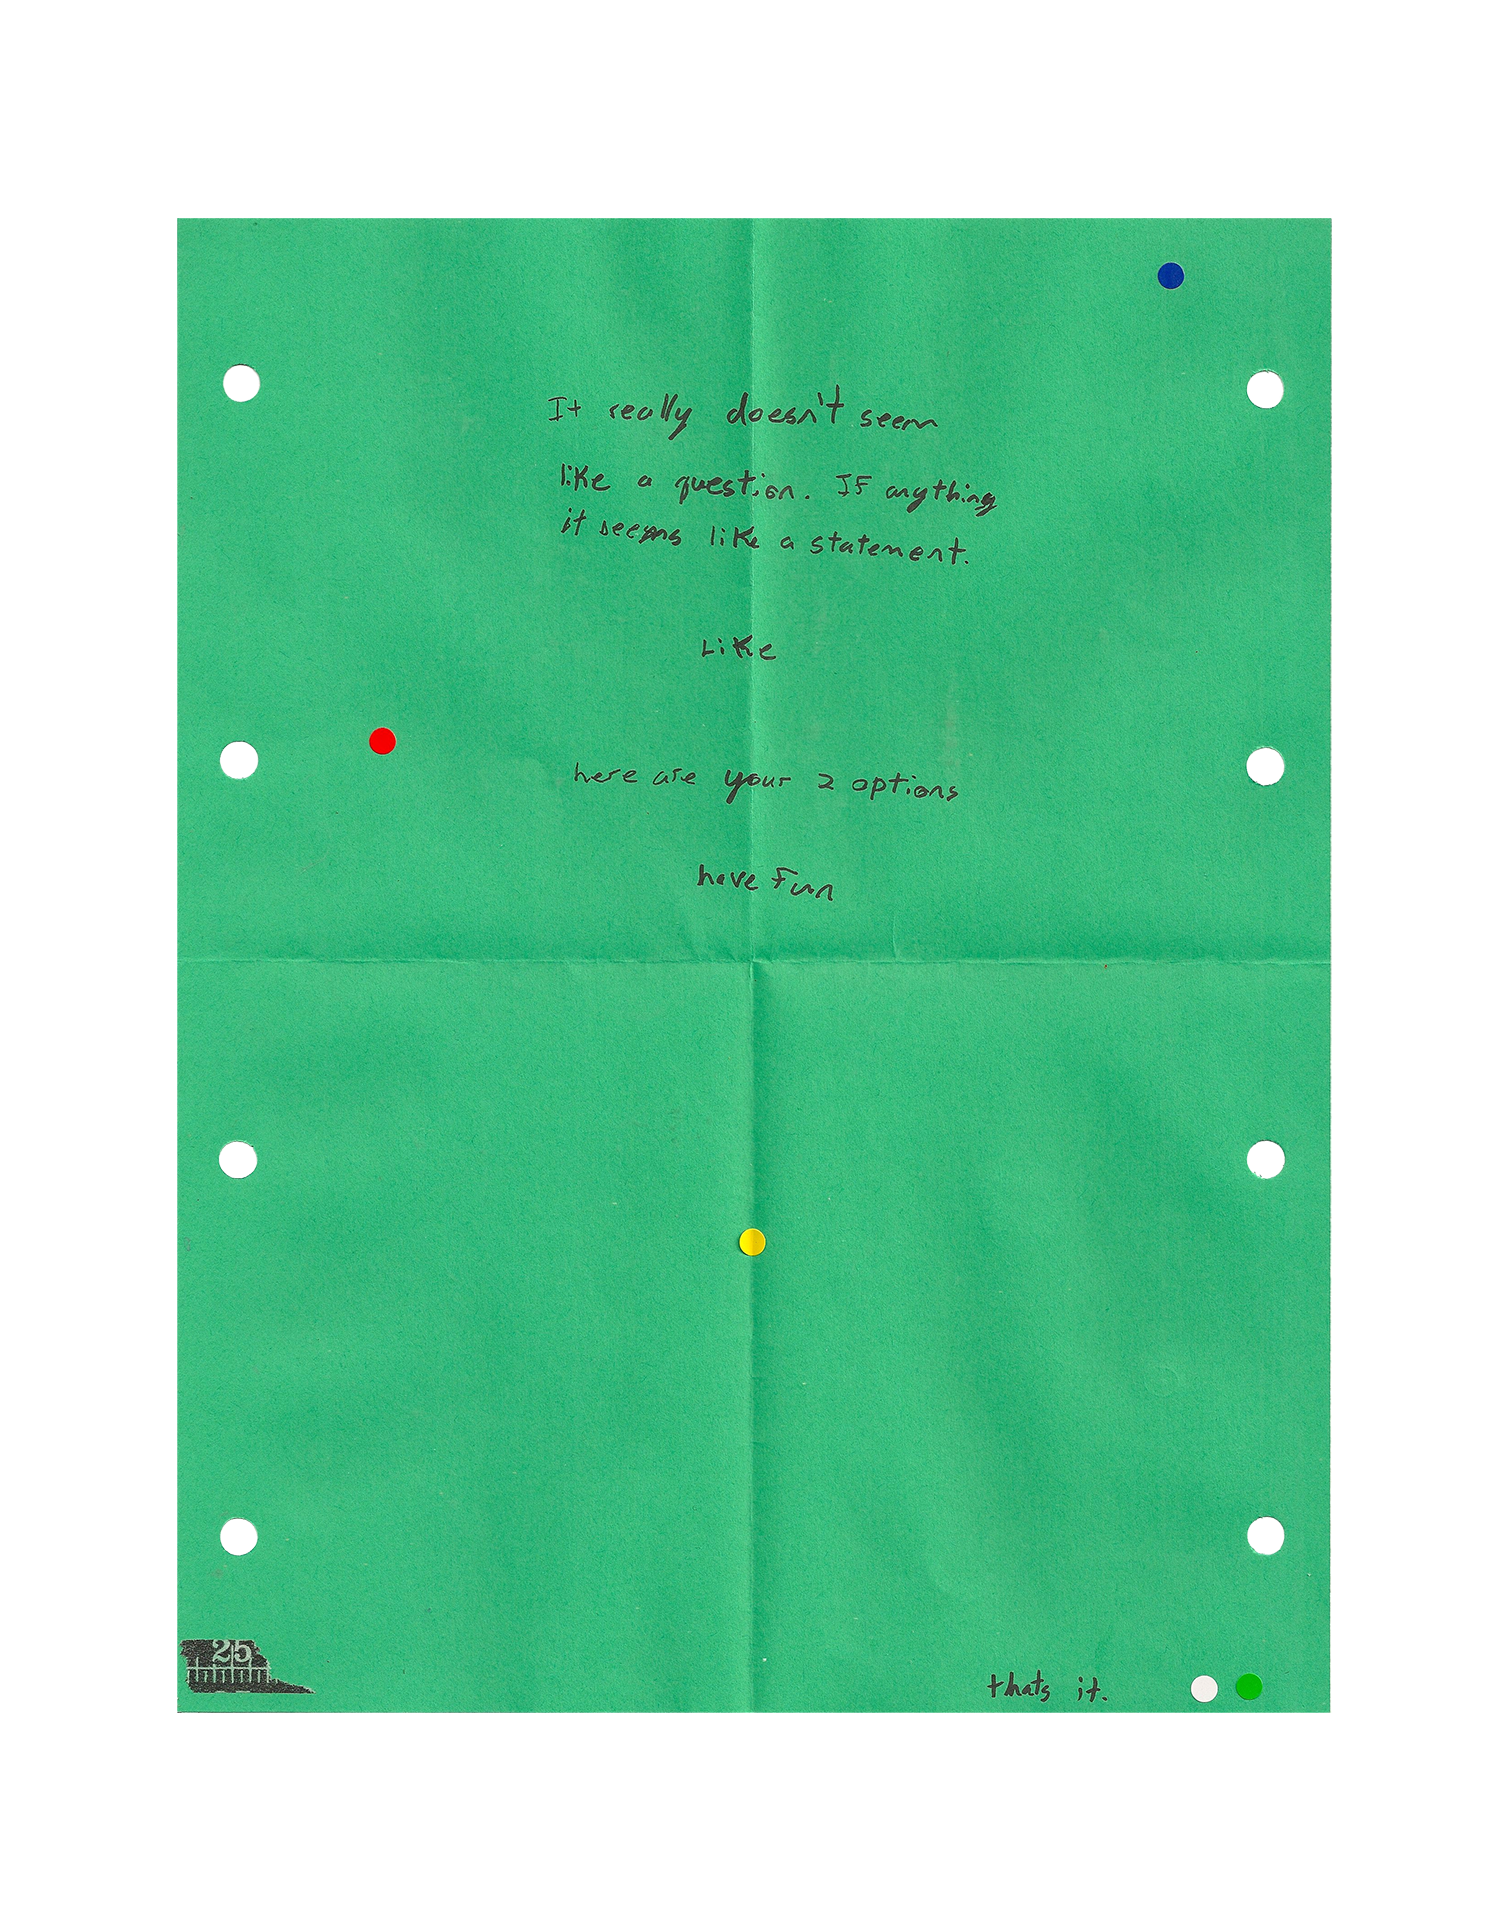 It really doesn't seem
like a question. If anything
it seems like a statement.
Like
here are your 2 options
have fun
25
thats it.